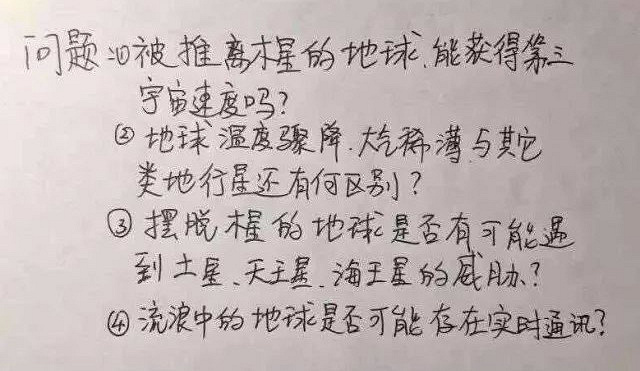 问题:①被推离木星的地球,能获得第三
宇宙速度吗?
②地球温度骤降,大气稀薄与其它
类地行星还有何区别?
③摆脱木星的地球是否有可能遇
到土星、天王星、海王星的威胁?
④流浪中的地球是否可能存在实时通讯?